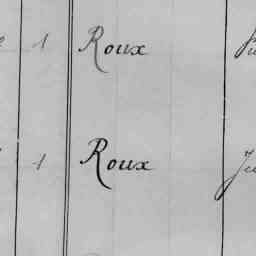 1 Roux
1 Roux